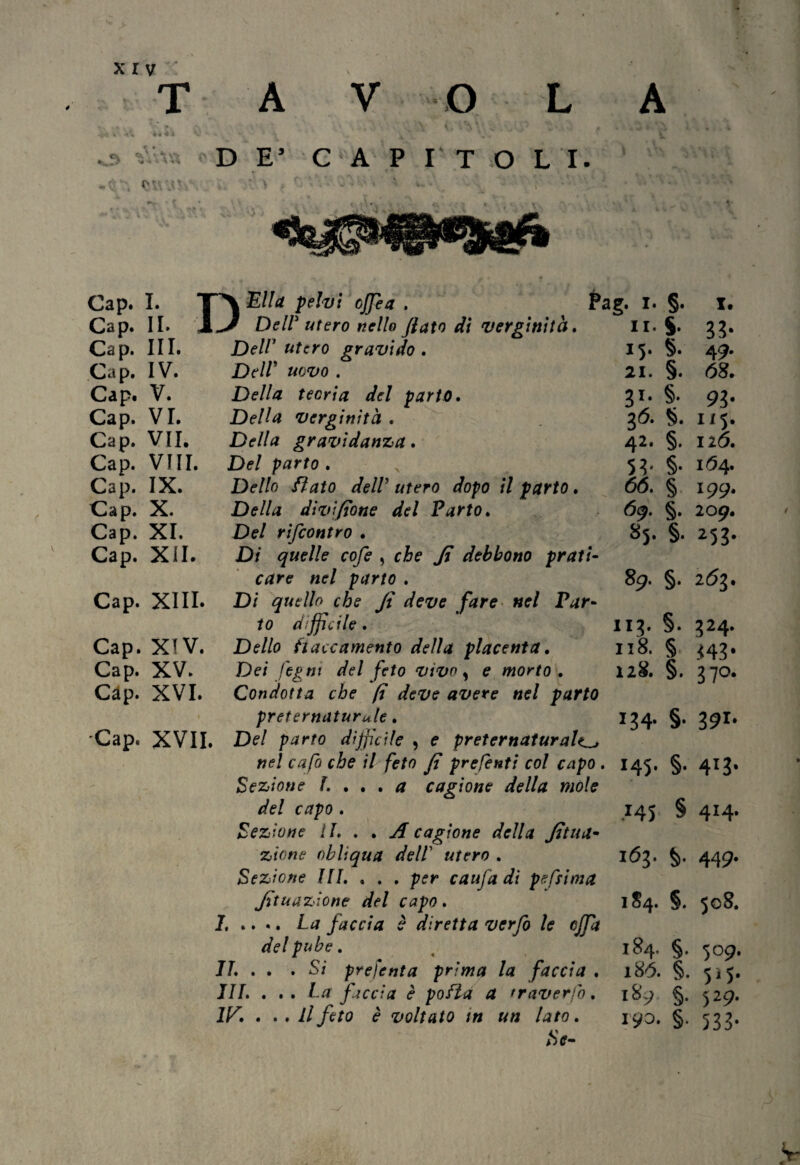 XIV
TAVOLA
DE' CAPITOLI.
Cap. I. DElla pelvi ossea . Pag. 1. §. 1.
Cap. II. Dell' utero nello stato di verginità. 11. §. 33.
Cap. III. Dell' utero gravido . 15. §. 49.
Cap. IV. Dell' uovo . 21. §. 68.
Cap. V. Della teoria del parto. 31. §. 93.
Cap. VI. Della verginità . 36. §. 115.
Cap. VII. Della gravidanza . 42. §. 126.
Cap. VIII. Del parto . 53. §. 164.
Cap. IX. Dello stato dell' utero dopo il parto. 66. § 199.
Cap. X. Della divisione del Parto. 69. §. 209.
Cap. XI. Del riscontro . 85. §. 253.
Cap. XII. Di quelle cose , che si debbono prati-
care nel parto . 89. §. 263.
Cap. XIII. Di quello che si deve fare nel Par-
to difficile . 113. §. 324.
Cap. XIV. Dello staccamento della placenta. 118. § 343.
Cap. XV. Dei segni del feto vivo, e morto . 128. §. 370.
Cap. XVI. Condotta che si deve avere nel parto
preternaturale. 134. §. 391.
Cap. XVII. Del parto difficile , e preternaturale
nel caso che il feto si presenti col capo . 145. §. 413.
Sezione I. . . . a cagione della mole
del capo . 145 § 414.
Sezione II. . . A cagione della situa-
zione obliqua dell' utero . 163. §. 449.
Sezione III. . . . per causa di pessima
situazione del capo. 184. §. 508.
I. .. .. La faccia è diretta verso le ossa
del pube. 184. §. 509.
II. . . . Si presenta prima la faccia . 186. §. 515.
III. . . . La faccia è posta a traverso. 189 §. 529.
IV. . . . Il feto è voltato in un lato. 190. §. 533.
Se-